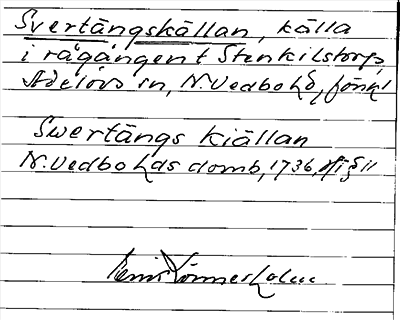 Svertängskällan, källa
i rågången t Stenkilstorp,
Adelövs sn, N. Vedbo hd, Jönk l
Swertängs Kiällan
N. Vedbo hds domb, 1736, § 11